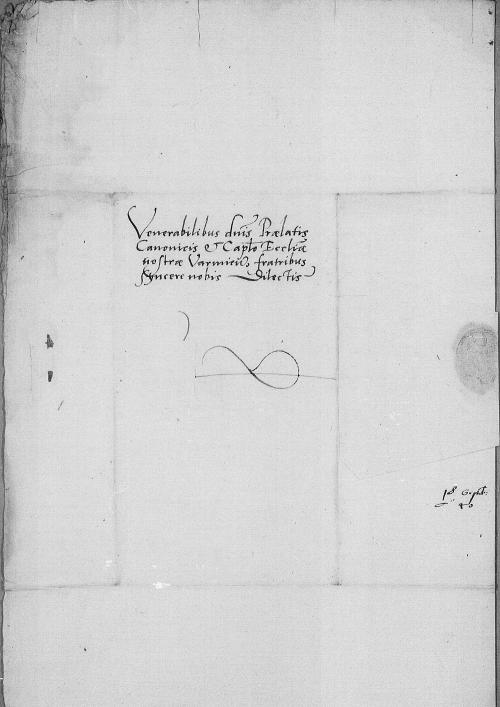 Venerabilibus dnis Prælatis
Canonicis & Caplo Eccliæ
nostræ Varmien, fratribus
syncere nobis Dilectis